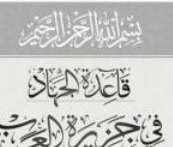 بسم الله الرحمن الرحيم
قاعدة الجهاد
في جزيرة العرب